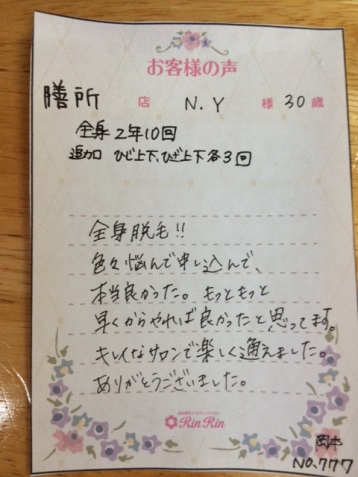 お客様の声
膳所 店 N.Y 様 30歳
全身 2年10回
追加 ひじ上下、ひざ上下各3回
全身脱毛!!
色々悩んで申し込んで、
本当良かった。もっともっと
早くからやれば良かったと思ってます。
キレイなサロンで楽しく通えました。
ありがとうございました。
RinRin
岡本
NO.777